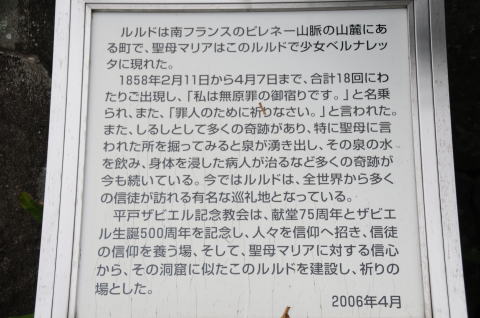 ルルドは南フランスのピレネー山脈の山麓にあ
る町で、聖母マリアはこのルルドで少女ベルナレッ
タに現れた。
1858年2月11日から4月7日まで、合計18回にわ
たりご出現し、「私は無原罪の御宿りです。」と名乗
られ、また、「罪人のために祈りなさい。」と言われた。
また、しるしとして多くの奇跡があり、特に聖母に言
われた所を掘ってみると泉が湧き出し、その泉の水
を飲み、身体を浸した病人が治るなど多くの奇跡が
今も続いている。今ではルルドは、全世界から多く
の信徒が訪れる有名な巡礼地となっている。
平戸ザビエル記念教会は、献堂75周年とザビエ
ル生誕500周年を記念し、人々を信仰へ招き、信徒
の信仰を養う場、そして、聖母マリアに対する信心
から、その洞窟に似たこのルルドを建設し、祈りの
場とした。
2006年4月